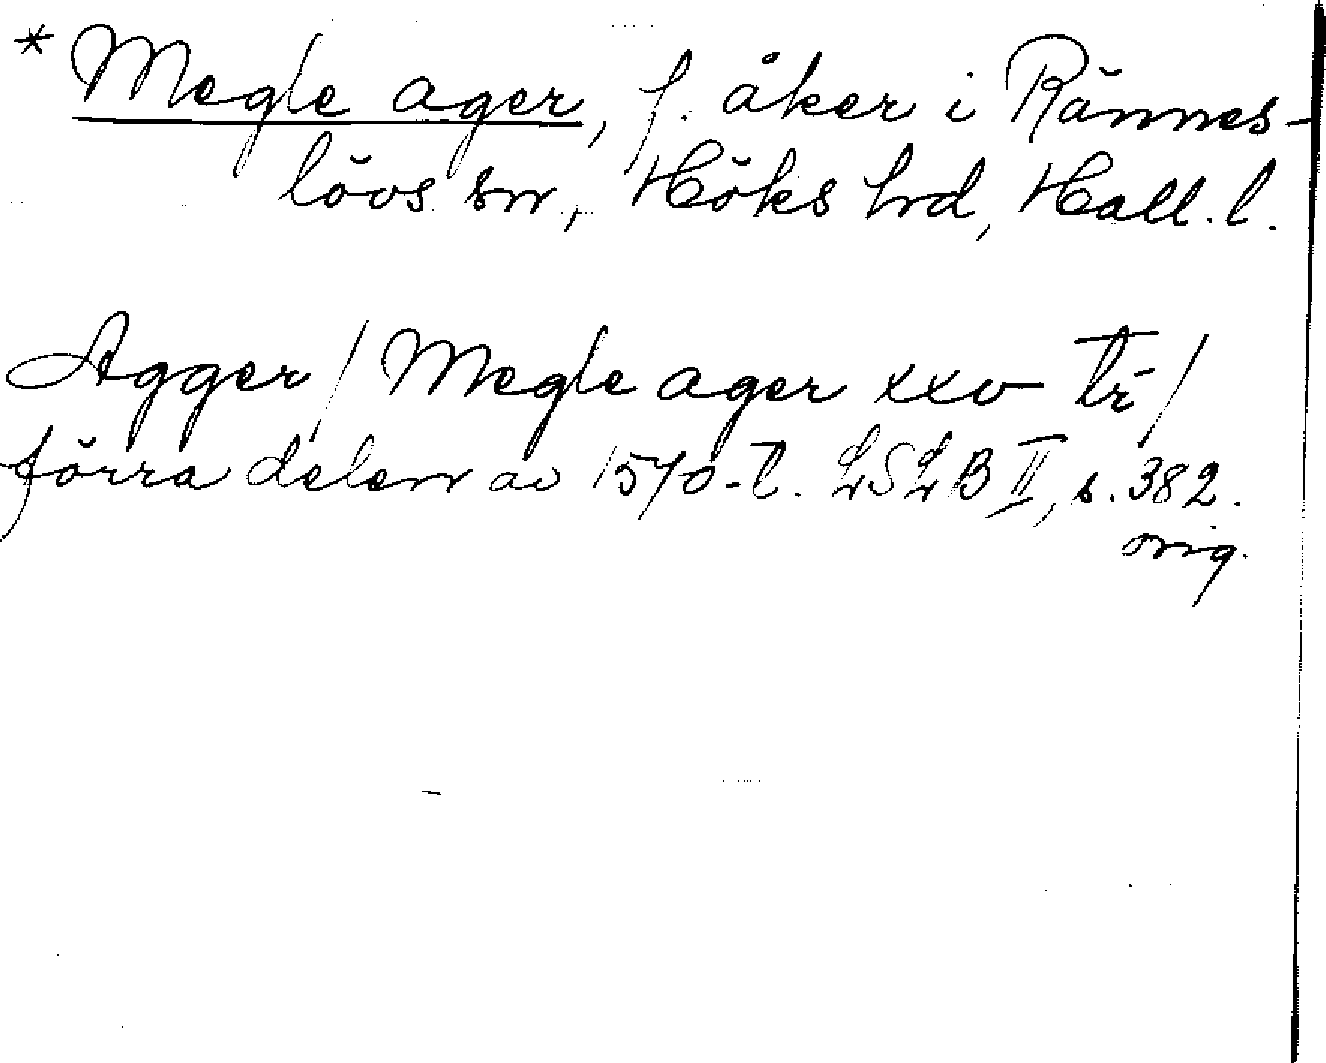 * Megle ager, f. åker i Rännes-
lövs sn, Höks hrd, Hall. l.
Agger / Megle ager xxv tr /
förra delen av 1570-t. LSLB II, s. 382.
orig.